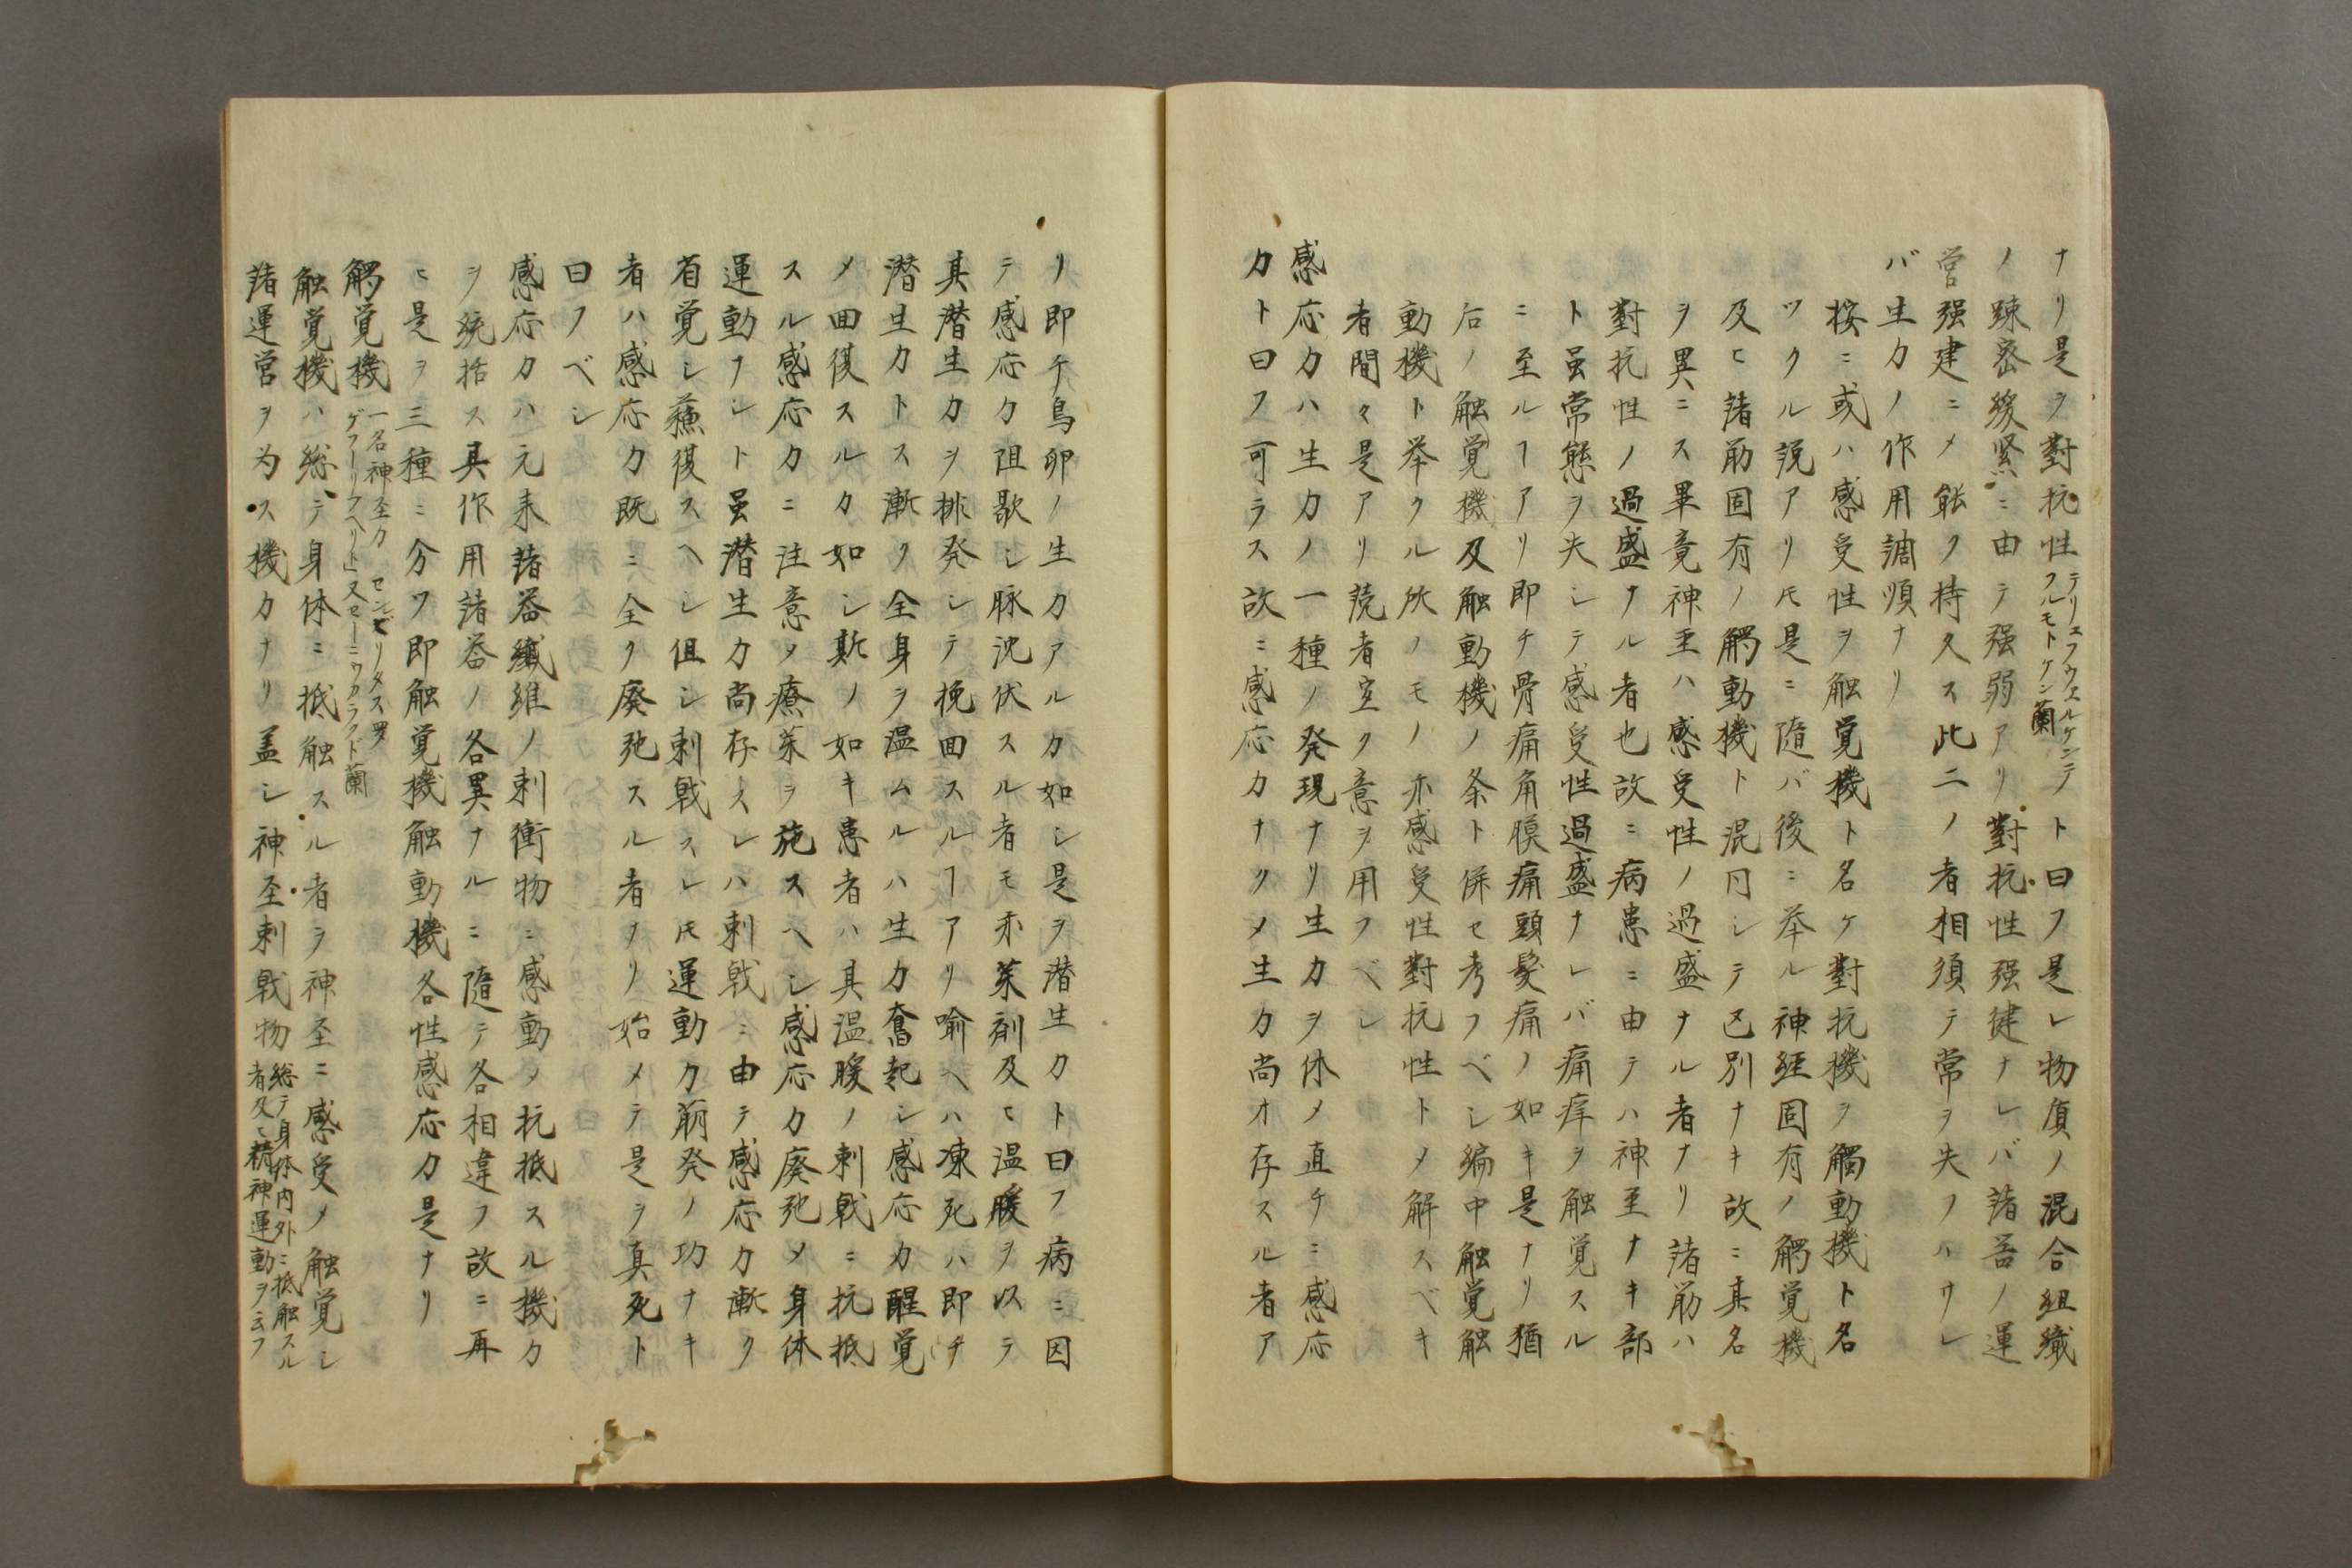 ナリ是ヲ對抗性テリュフウェルケンデフルモトゲン蘭ト曰フ是レ物質ノ混合組織
ノ踈密緩緊ニ由テ强弱アリ對抗性强健ナレバ諸器ノ運
営强建ニメ能ク持久ス此二ノ者相須テ常ヲ失フハサレ
バ生力ノ作用調順ナリ
按ニ或ハ感受性ヲ触覚機ト名ケ對抗機ヲ觸動機ト名
ツクル説アリ𪜈是ニ隨バ後ニ举ル神経固有ノ觸覚機
及ヒ諸筋固有ノ觸動機ト混同シテ区別ナキ故ニ其名
ヲ異ニス畢竟神至ハ感受性ノ過盛ナル者ナリ諸筋ハ
對抗性ノ過盛ナル者也故ニ病患ニ由テハ神至ナキ部
ト虽常態ヲ失シテ感受性過盛ナレバ痛痒ヲ触覚スル
ニ至ルヿアリ即チ骨痛角膜痛頭髮痛ノ如キ是ナリ猶
后ノ触覚機及触動機ノ条ト併セ考フベシ編中触覚触
動機ト举クル所ノモノ亦感受性對抗性トメ解スベキ
者間々是アリ読者宜ク意ヲ用フベシ
感応力ハ生力ノ一種ノ発現ナリ生力ヲ休メ直チニ感応
力ト曰フ可ラス故ニ感応力ナクメ生力尚オ存スル者ア
リ即チ鳥卵ノ生力アルカ如シ是ヲ潜生力ト曰フ病ニ因
テ感応力阻歇シ脉沈伏スル者モ亦茱剤及ヒ温腰ヲ以テ
其潜生力ヲ排発シテ挽回スルヿアリ喻ヘハ凍死ハ即チ
潜生力トス漸ク全身ヲ温ムルハ生力奮起シ感応力醒覚
メ回復スルカ如シ斯ノ如キ患者ハ其温腰ノ刺戟ニ抗抵
スル感応力ニ注意メ療茱ヲ施スヘシ感応力廃弛メ身体
運動ナシト虽潜生力尚存スレハ刺戟ニ由テ感応力漸ク
省覚シ蘓復スヘシ但シ刺戟スレ𪜈運動力萠発ノ功ナキ
者ハ感応力既ニ全ク廃弛スル者ナリ始メテ是ヲ真死ト
曰フベシ
感応力ハ元来諸器纎維ノ刺衝物ニ感動メ抗抵スル機力
ヲ統括ス其作用諸器ノ各異ナルニ隨テ各相違フ故ニ再
ヒ是ヲ三種ニ分ツ即触覚機触動機各性感応力是ナリ
觸覚機一名神至力 センビリタス羅ゲフーリフヘリト」又セーニウカラクト蘭
触覚機ハ総テ身体ニ抵触スル者ヲ神至ニ感受メ触覚シ
諸運営ヲ为ス機力ナリ盖シ神至刺戟物総テ身体内外ニ抵触スル者及ヒ精神運動ヲ云フ